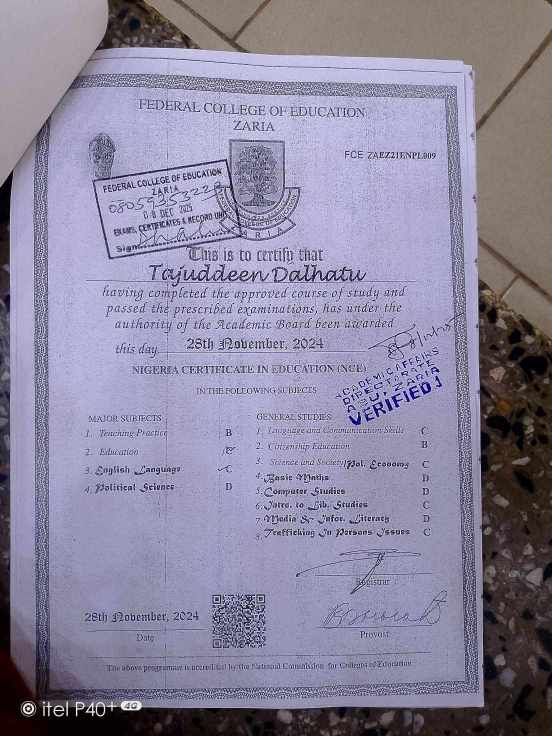 FEDERAL COLLEGE OF EDUCATION
ZARIA
FCE ZAEZ21ENPL009
FEDERAL COLLEGE OF EDUCATION
ZARIA
DEC 2025
EXAMS, CERTIFICATES & RECORD UNIT
Sign
ZARIA
This is to certify that
Tajuddeen Dalhatu
having completed the approved course of study and
passed the prescribed examinations, has under the
authority of the Academic Board been awarded
this day 28th November, 2024
NIGERIA CERTIFICATE IN EDUCATION (NCE)
IN THE FOLLOWING SUBJECTS
ACADEMIC AFFAIRS
DIRECTORATE
A.B.U., ZARIA
VERIFIED 1
MAJOR SUBJECTS
1. Teaching Practice B
2. Education
3. English Language C
4. Political Science D
GENERAL STUDIES
1. Language and Communication Skills C
2. Citizenship Education B
3. Science and Society/Pol. Economy C
4. Basic Maths D
5. Computer Studies D
6. Intro. to Lib. Studies C
7 Media & Infor. Literacy D
8. Trafficking In Persons Issues C
Registrar
28th November, 2024
Date
Provost
The above programme is accredited by the National Commission for Colleges of Education
itel P40+ 4G